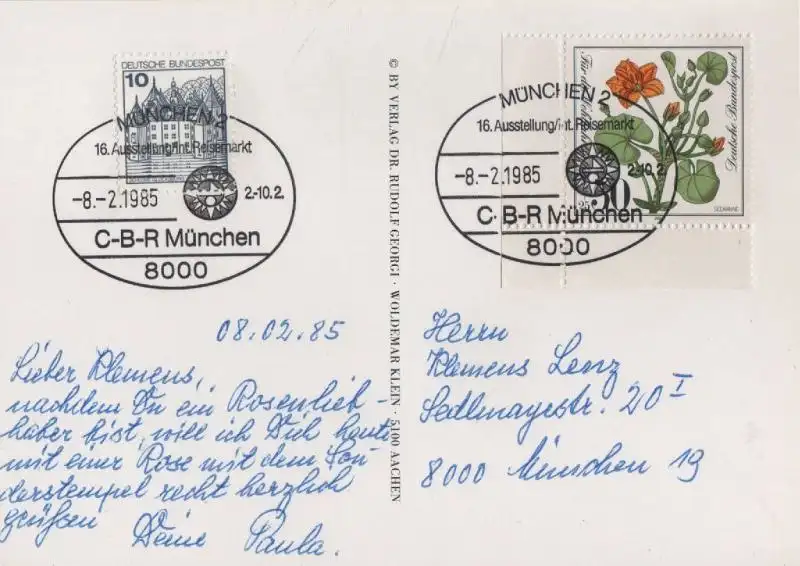 DEUTSCHE BUNDESPOST
10
MÜNCHEN 2
16. Ausstellung/int. Reisemarkt
-8.-2.1985
2.-10.2.
C-B-R München
8000
08.02.85
Lieber Klemens,
nachdem Du ein Rosenlieb-
haber bist, will ich Dich heute
mit einer Rose mit dem Son-
derstempel recht herzlich
grüßen
Deine Paula.
© BY VERLAG DR. RUDOLF GEORGI · WOLDEMAR KLEIN · 5100 AACHEN
Deutsche Bundespost
50
25
SEEKANNE
MÜNCHEN 2
16. Ausstellung/int. Reisemarkt
-8.-2.1985
2.-10.2.
C-B-R München
8000
Herrn
Klemens Lenz
Sedlmayrstr. 20 I
8000 München 19